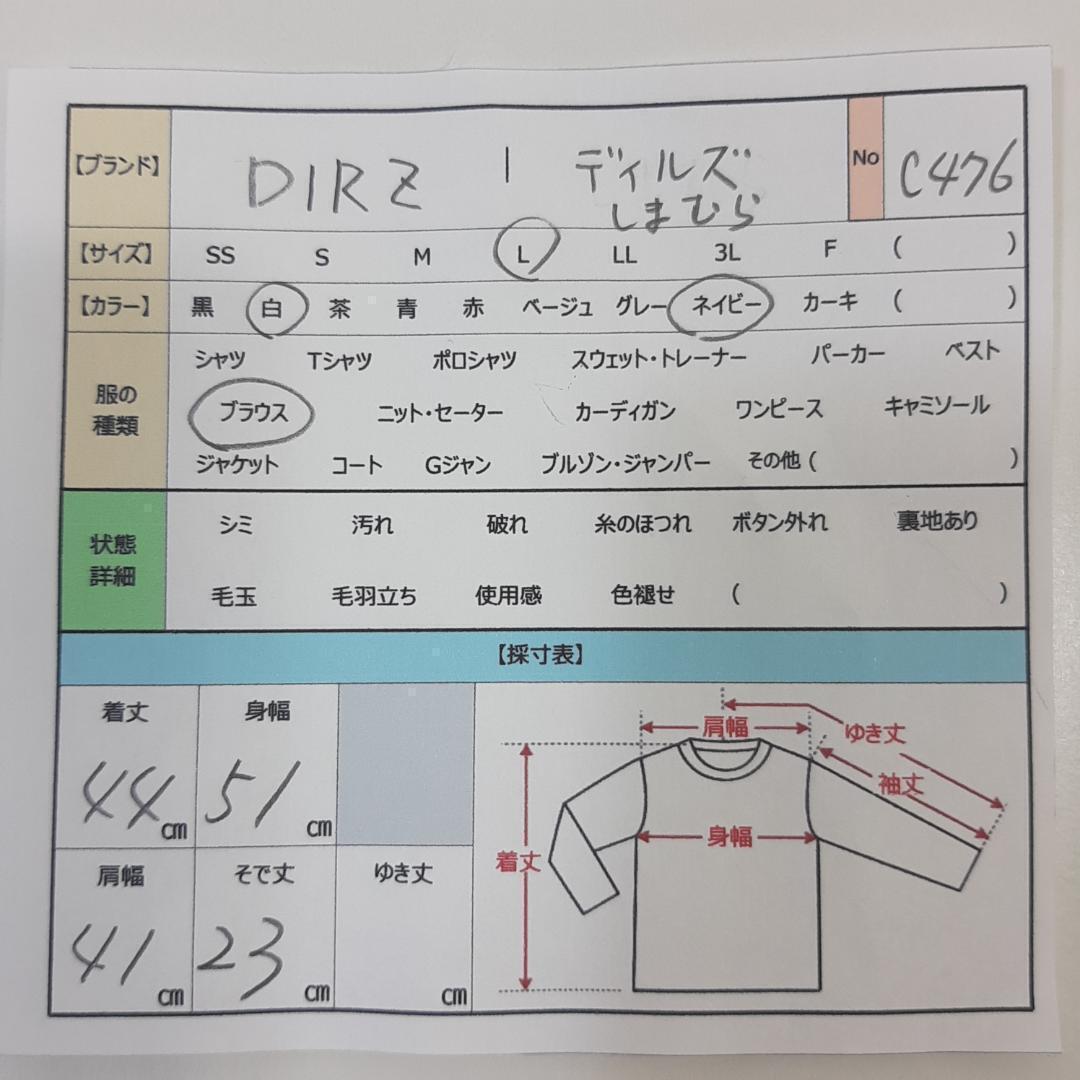 【ブランド】 DIRZ | ディルズ No C476
しまむら
【サイズ】 SS S M L LL 3L F ( )
【カラー】 黒 白 茶 青 赤 ベージュ グレー ネイビー カーキ ( )
服の
種類
シャツ Tシャツ ポロシャツ スウェット・トレーナー パーカー ベスト
ブラウス ニット・セーター カーディガン ワンピース キャミソール
ジャケット コート Gジャン ブルゾン・ジャンパー その他 ( )
状態
詳細
シミ 汚れ 破れ 糸のほつれ ボタン外れ 裏地あり
毛玉 毛羽立ち 使用感 色褪せ ( )
【採寸表】
着丈 身幅
44cm 51cm
肩幅 そで丈 ゆき丈
41cm 23cm cm
肩幅 ゆき丈
袖丈
身幅
着丈